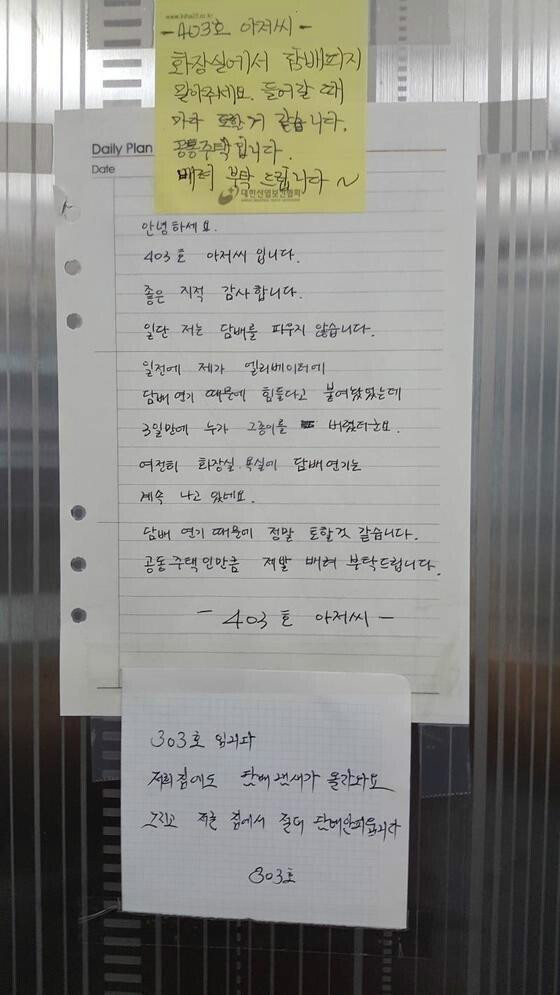 www.kiha21.or.kr
-403호 아저씨-
화장실에서 담배피지
말아주세요. 들어갈 때
마다 토할거 같습니다.
공통주택입니다.
배려 부탁드립니다~
대한산업보건협회
Daily Plan
Date
안녕하세요.
403호 아저씨 입니다.
좋은 지적 감사합니다.
일단 저는 담배를 피우지 않습니다.
일전에 제가 엘리베이터에
담배 연기 때문에 힘들다고 붙여놨었는데
3일만에 누가 그종이를 버렸더군요.
여전히 화장실.욕실에 담배연기는
계속 나고 있네요.
담배 연기 때문에 정말 토할것 같습니다.
공동주택인만큼 제발 배려 부탁드립니다.
- 403호 아저씨 -
303호 입니다
저희집에도 담배 냄새가 올라와요
그리고 저흰 집에서 절대 담배안피웁니다
303호